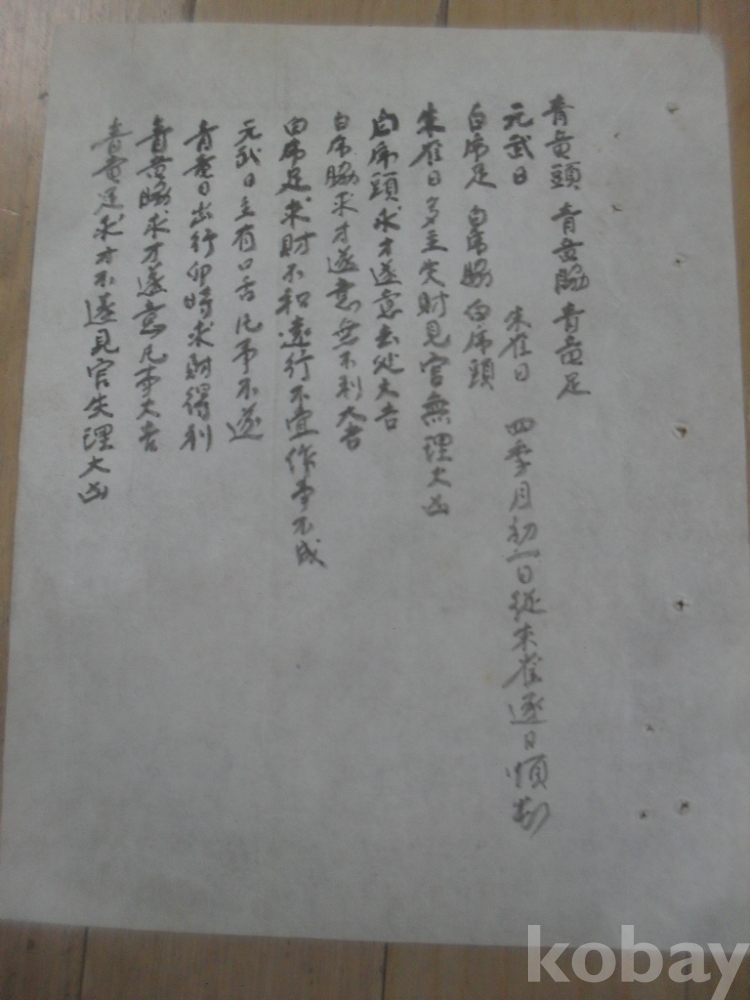 青黄頭 青黄脇 青黄足
元武日 朱雀日 四季月初一日從朱雀逐日順數
白虎足 白虎脇 白虎頭
朱雀日多主失財見官無理大凶
白虎頭求才遂意去处大吉
白虎脇求才遂意無不利大吉
白虎足求財不和遠行不宜作事不成
元武日主有口舌凡事不遂
青竜日出行卯時求財得利
青黄脇求才遂意凡事大吉
青黄足求才不遂見官失理大凶
kobay